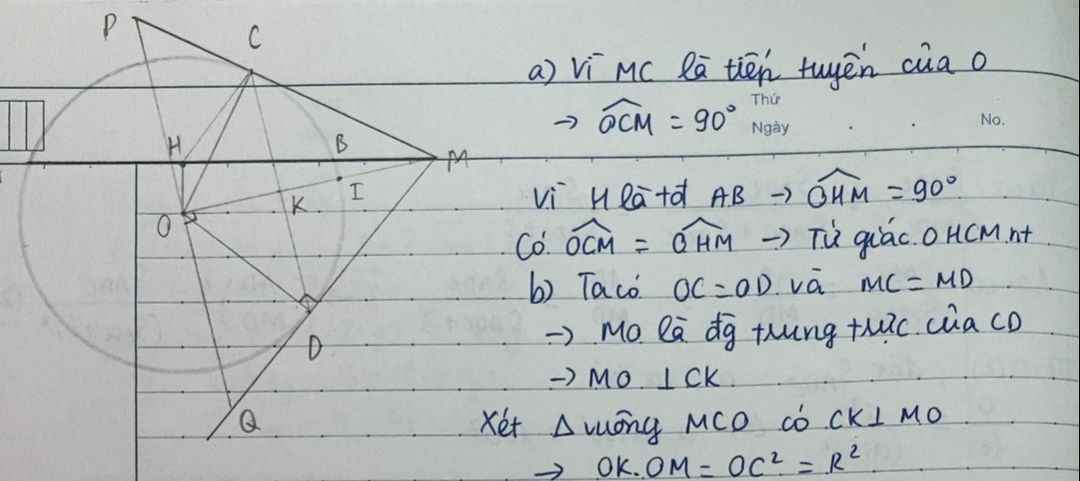 P
C
H
B
M
I
K
O
D
Q
a) Vì MC là tiếp tuyến của O
→ OCM = 90°
Thứ
Ngày
No.
Vì H là tđ AB → OHM = 90°
Có OCM = OHM → Tứ giác OHCM nt
b) Ta có OC = OD và MC = MD
→ MO là đg trung trực của CD
→ MO ⊥ CK
Xét Δ vuông MCO có CK ⊥ MO
→ OK.OM = OC² = R²